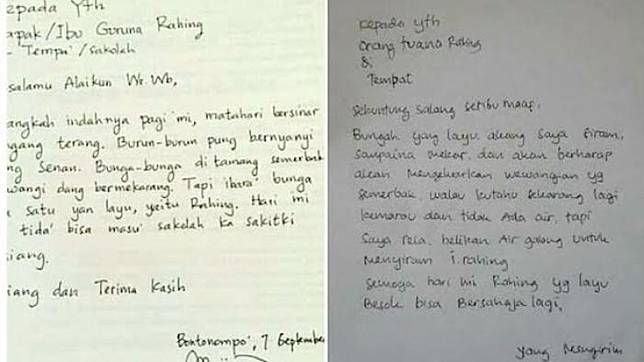 epada Yth
apak/Ibu Guruna Rahing
- 'Tempa'/sakolah
salamu Alaikun Wr. Wb,
angkah indahnya pagi mi, matahari bersinar
gang terang. Burun-burun pung bernyanyi
ng Senan. Bunga-bunga di tamang semerbak
wangi dang bermekarang. Tapi ibara' bunga
satu yan layu, yaitu Rahing. Hari mi
tida' bisa masu' sakolah ka sakitki
iang.
iang dan Terima Kasih
Bontonompo', 7 September
Kepada yth
Orang tuana Rahing
di
Tempat
Sekuntung salang seribu maap,
Bungah yang layu akang saya siram,
sampaina mekar. dan akan berharap
akan mengeluarkan wewangian yg
semerbak, walau kutahu sekarang lagi
kemarau dan tidak Ada air, tapi
Saya rela, belikan Air galong untuk
menyiram i. rahing
semoga hari ini Rahing yg layu
Besok bisa Bersahaja lagi.
yang Mengirim